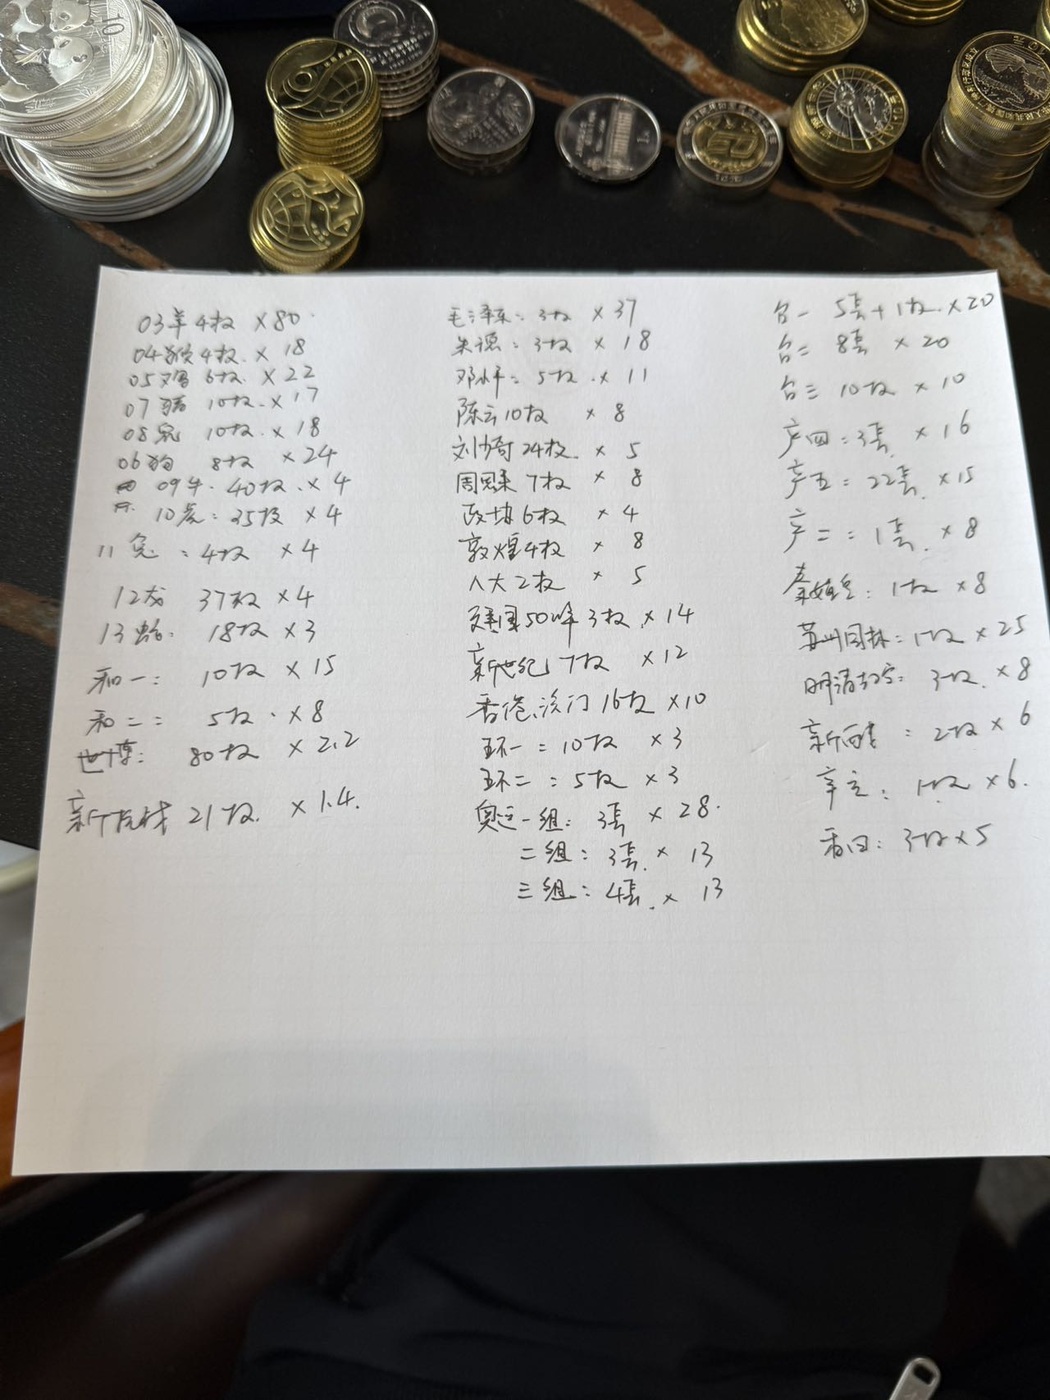 10
1
03羊 4枚 ×80
04猴 4枚 ×18
05鸡 6枚 ×22
07猪 10枚 ×17
08鼠 10枚 ×18
06狗 8枚 ×24
09牛 40枚 ×4
10虎: 35枚 ×4
11兔: 4枚 ×4
12龙 37枚 ×4
13蛇: 18枚 ×3
和一: 10枚 ×15
和二: 5枚 ×8
世博: 80枚 ×2.2
21枚 ×1.4
毛泽东: 3枚 ×37
朱德: 3枚 ×18
邓小平: 5枚 ×11
陈云 10枚 ×8
刘少奇 24枚 ×5
周恩来 7枚 ×8
政协 6枚 ×4
敦煌 4枚 ×8
人大 2枚 ×5
建国50年 3枚 ×14
新世纪 7枚 ×12
香港、澳门 16枚 ×10
环一: 10枚 ×3
环二: 5枚 ×3
奥运一组: 3套 ×28
二组: 3套 ×13
三组: 4套 ×13
台一 5套+1枚 ×20
台二 8套 ×20
台三 10枚 ×10
产四: 3套 ×16
产五: 22套 ×15
产二: 1套 ×8
秦始皇: 1枚 ×8
苏州园林: 1枚 ×25
明清故宫: 3枚 ×8
2枚 ×6
辛亥: 1枚 ×6
香回: 3枚 ×5